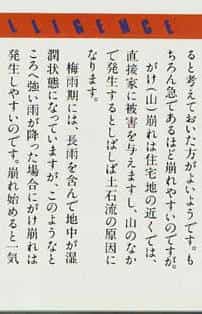 LLIGENCE
ると考えておいた方がよいようです。も
ちろん急であるほど崩れやすいのですが。
がけ(山)崩れは住宅地の近くでは、
直接家に被害を与えますし、山のなか
で発生するとしばしば土石流の原因に
なります。
梅雨期には、長雨を含んで地中が湿
潤状態になっていますが、このようなと
ころへ強い雨が降った場合にがけ崩れは
発生しやすいのです。崩れ始めると一気